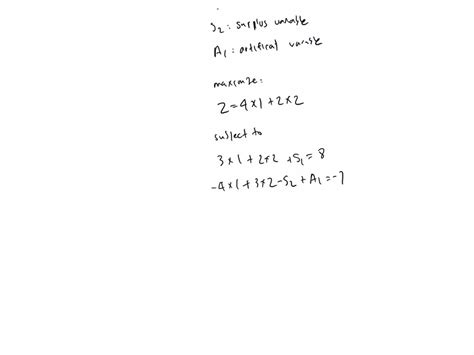 S2: surplus variable
A1: artifical variable
maximize:
Z=4x1+2x2
subject to
3x1+2x2+S1=8
-4x1+3x2-S2+A1=-7